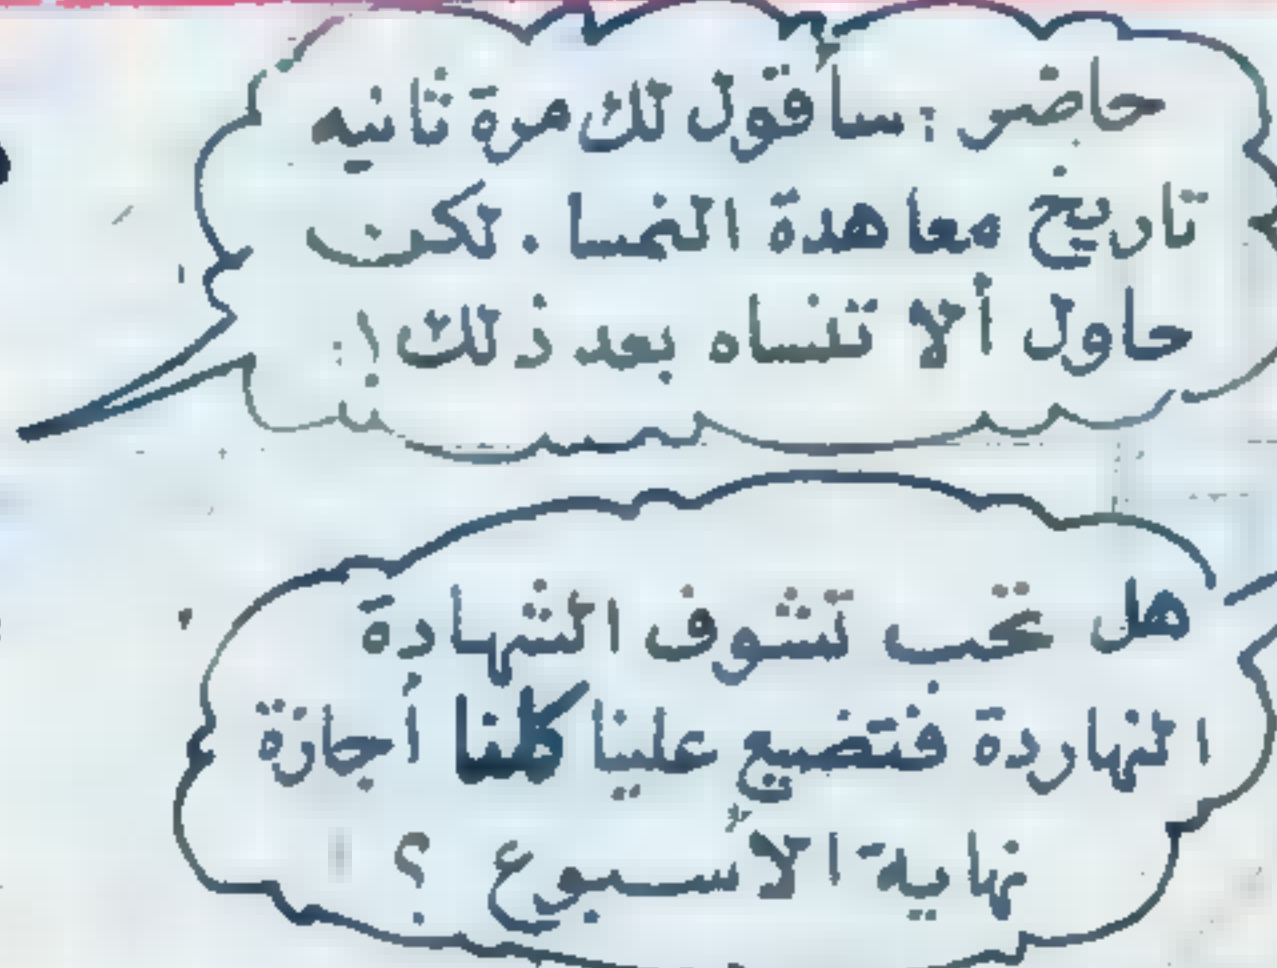 حاضر : سأقول لك مرة ثانيه
تاريخ معاهدة النمسا . لكن
حاول ألا تنساه بعد ذلك !
هل تحب تشوف الشهادة
النهاردة فتضيع علينا كلنا أجازة
نهاية الأسبوع ؟